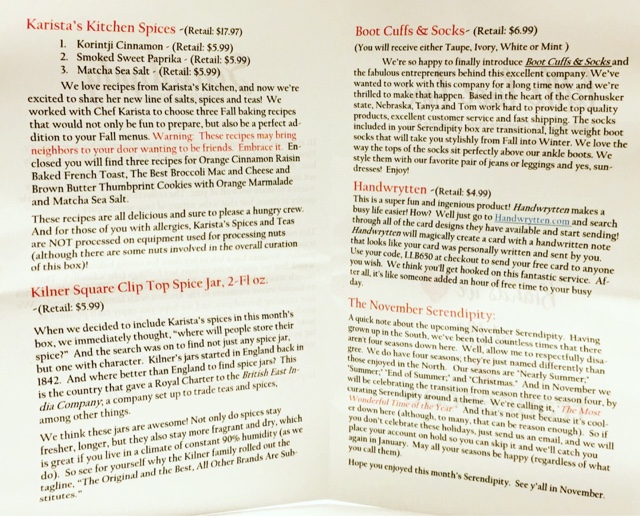 Karista's Kitchen Spices -(Retail: $17.97)
1. Korintji Cinnamon - (Retail: $5.99)
2. Smoked Sweet Paprika - (Retail: $5.99)
3. Matcha Sea Salt - (Retail: $5.99)
We love recipes from Karista's Kitchen, and now we're
excited to share her new line of salts, spices and teas! We
worked with Chef Karista to choose three Fall baking recipes
that would not only be fun to prepare, but also be a perfect ad-
dition to your Fall menus. Warning: These recipes may bring
neighbors to your door wanting to be friends. Embrace it. En-
closed you will find three recipes for Orange Cinnamon Raisin
Baked French Toast, The Best Broccoli Mac and Cheese and
Brown Butter Thumbprint Cookies with Orange Marmalade
and Matcha Sea Salt.
These recipes are all delicious and sure to please a hungry crew.
And for those of you with allergies, Karista's Spices and Teas
are NOT processed on equipment used for processing nuts
(although there are some nuts involved in the overall curation
of this box)!
Kilner Square Clip Top Spice Jar, 2-Fl oz.
-(Retail: $5.99)
When we decided to include Karista's spices in this month's
box, we immediately thought, "where will people store their
spice?" And the search was on to find not just any spice jar,
but one with character. Kilner's jars started in England back in
1842. And where better than England to find spice jars? This
is the country that gave a Royal Charter to the British East In-
dia Company; a company set up to trade teas and spices,
among other things.
We think these jars are awesome! Not only do spices stay
fresher, longer, but they also stay more fragrant and dry, which
is great if you live in a climate of constant 90% humidity (as we
do). So see for yourself why the Kilner family rolled out the
tagline, "The Original and the Best, All Other Brands Are Sub-
stitutes."
Boot Cuffs & Socks- (Retail: $6.99)
(You will receive either Taupe, Ivory, White or Mint )
We're so happy to finally introduce Boot Cuffs & Socks and
the fabulous entrepreneurs behind this excellent company. We've
wanted to work with this company for a long time now and we're
thrilled to make that happen. Based in the heart of the Cornhusker
state, Nebraska, Tanya and Tom work hard to provide top quality
products, excellent customer service and fast shipping. The socks
included in your Serendipity box are transitional, light weight boot
socks that will take you stylishly from Fall into Winter. We love the
way the tops of the socks sit perfectly above our ankle boots. We
style them with our favorite pair of jeans or leggings and yes, sun-
dresses! Enjoy!
Handwrytten -(Retail: $4.99)
This is a super fun and ingenious product! Handwrytten makes a
busy life easier! How? Well just go to Handwrytten.com and search
through all of the card designs they have available and start sending!
Handwrytten will magically create a card with a handwritten note
that looks like your card was personally written and sent by you.
Use your code, LLB650 at checkout to send your free card to anyone
you wish. We think you'll get hooked on this fantastic service. Af-
ter all, it's like someone added an hour of free time to your busy
day.
The November Serendipity:
A quick note about the upcoming November Serendipity. Having
grown up in the South, we've been told countless times that there
aren't four seasons down here. Well, allow me to respectfully disa-
gree. We do have four seasons; they're just named differently than
those enjoyed in the North. Our seasons are "Nearly Summer,"
"Summer," "End of Summer," and "Christmas." And in November we
will be celebrating the transition from season three to season four, by
curating Serendipity around a theme. We're calling it, "The Most
Wonderful Time of the Year." And that's not just because it's cool-
er down here (although, to many, that can be reason enough). So if
you don't celebrate these holidays, just send us an email, and we will
place your account on hold so you can skip it and we'll catch you
again in January. May all your seasons be happy (regardless of what
you call them).
Hope you enjoyed this month's Serendipity. See y'all in November.